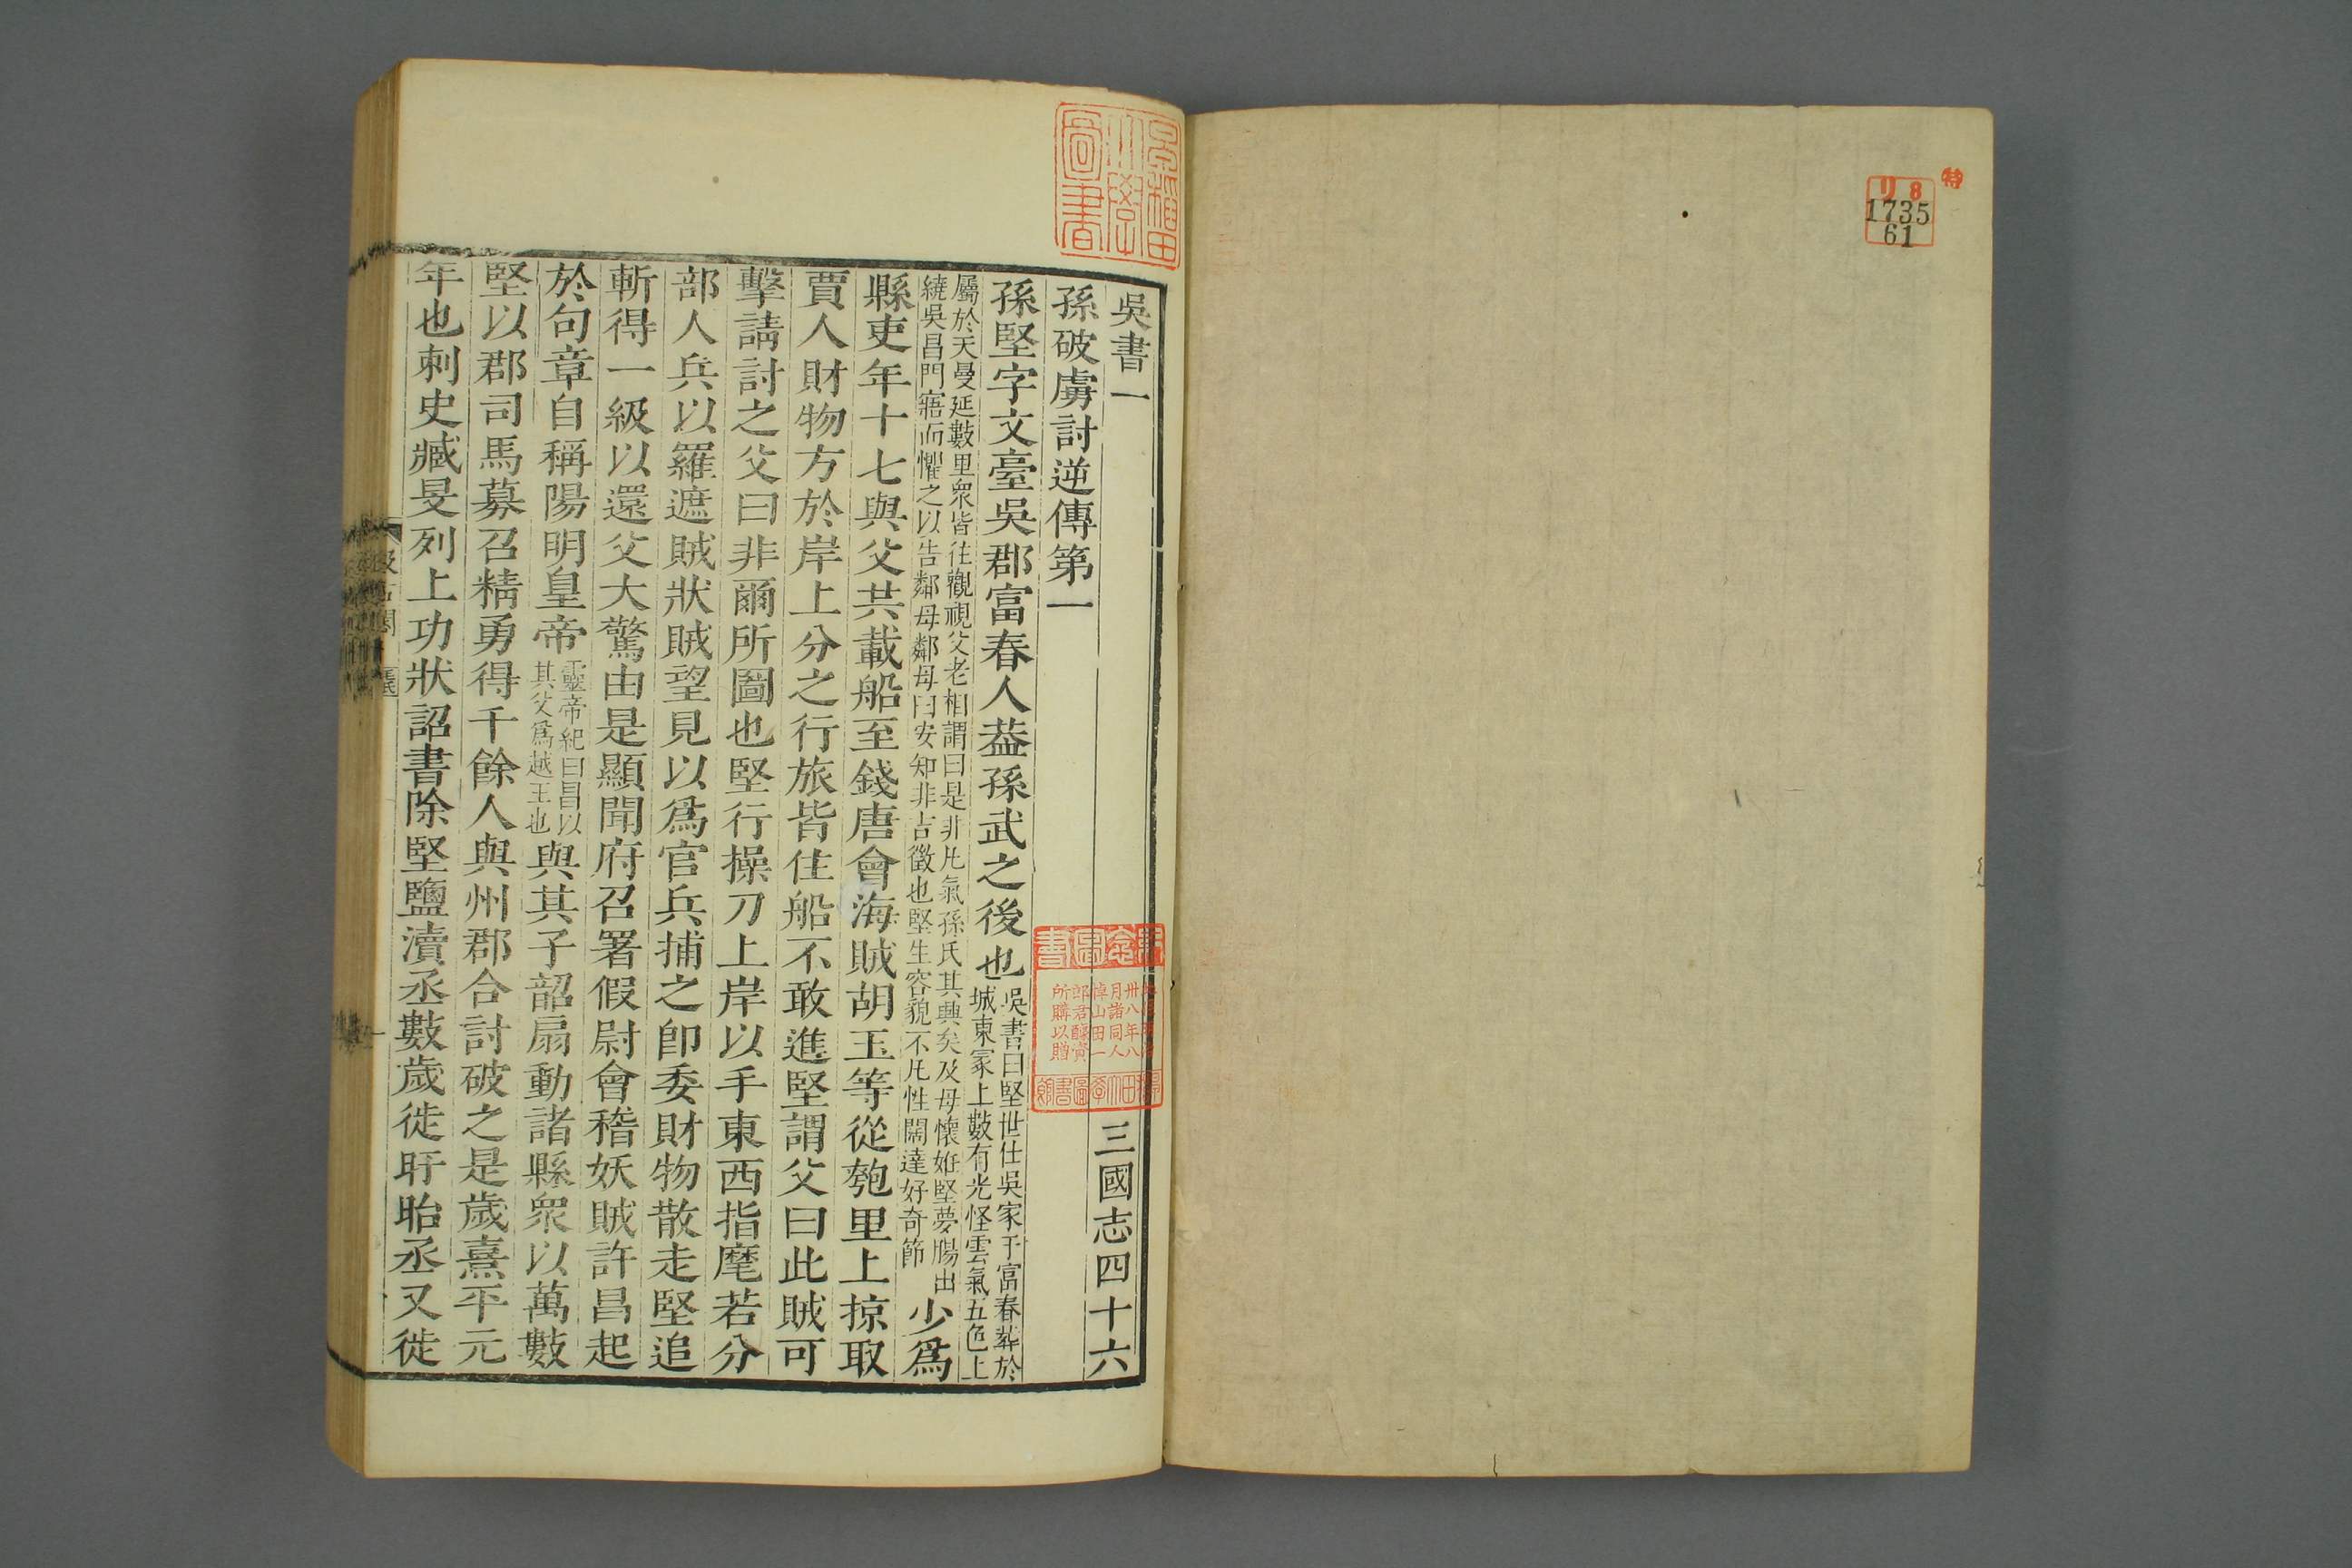 特
リ8
1735
61
早稲田大學圖書
吳書一 三國志四十六
孫破虜討逆傳第一
孫堅字文臺吳郡富春人葢孫武之後也吳書曰堅世仕吳家于富春葬於
城東冢上數有光怪雲氣五色上
屬於天曼延數里衆皆往觀視父老相謂曰是非凡氣孫氏其興矣及母懷姙堅夢腸出
繞吳昌門寤而懼之以告鄰母鄰母曰安知非吉徵也堅生容貌不凡性闊達好奇節
少爲
縣吏年十七與父共載船至錢唐會海賊胡玉等從匏里上掠取
賈人財物方於岸上分之行旅皆住船不敢進堅謂父曰此賊可
擊請討之父曰非爾所圖也堅行操刀上岸以手東西指麾若分
部人兵以羅遮賊狀賊望見以爲官兵捕之卽委財物散走堅追
斬得一級以還父大驚由是顯聞府召署假尉會稽妖賊許昌起
於句章自稱陽明皇帝靈帝紀曰昌以
其父爲越王也
與其子韶扇動諸縣衆以萬數
堅以郡司馬募召精勇得千餘人與州郡合討破之是歲熹平元
年也刺史臧旻列上功狀詔書除堅鹽瀆丞數歲徙盱眙丞又徙
月諸同人
悼山田一
郎君醵資
所購以贈